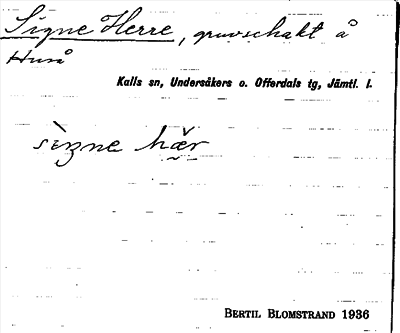 Signe Herre, gruvschakt å
Huså
Kalls sn, Undersåkers o. Offerdals tg, Jämtl. l.
sìgne hær
BERTIL BLOMSTRAND 1936